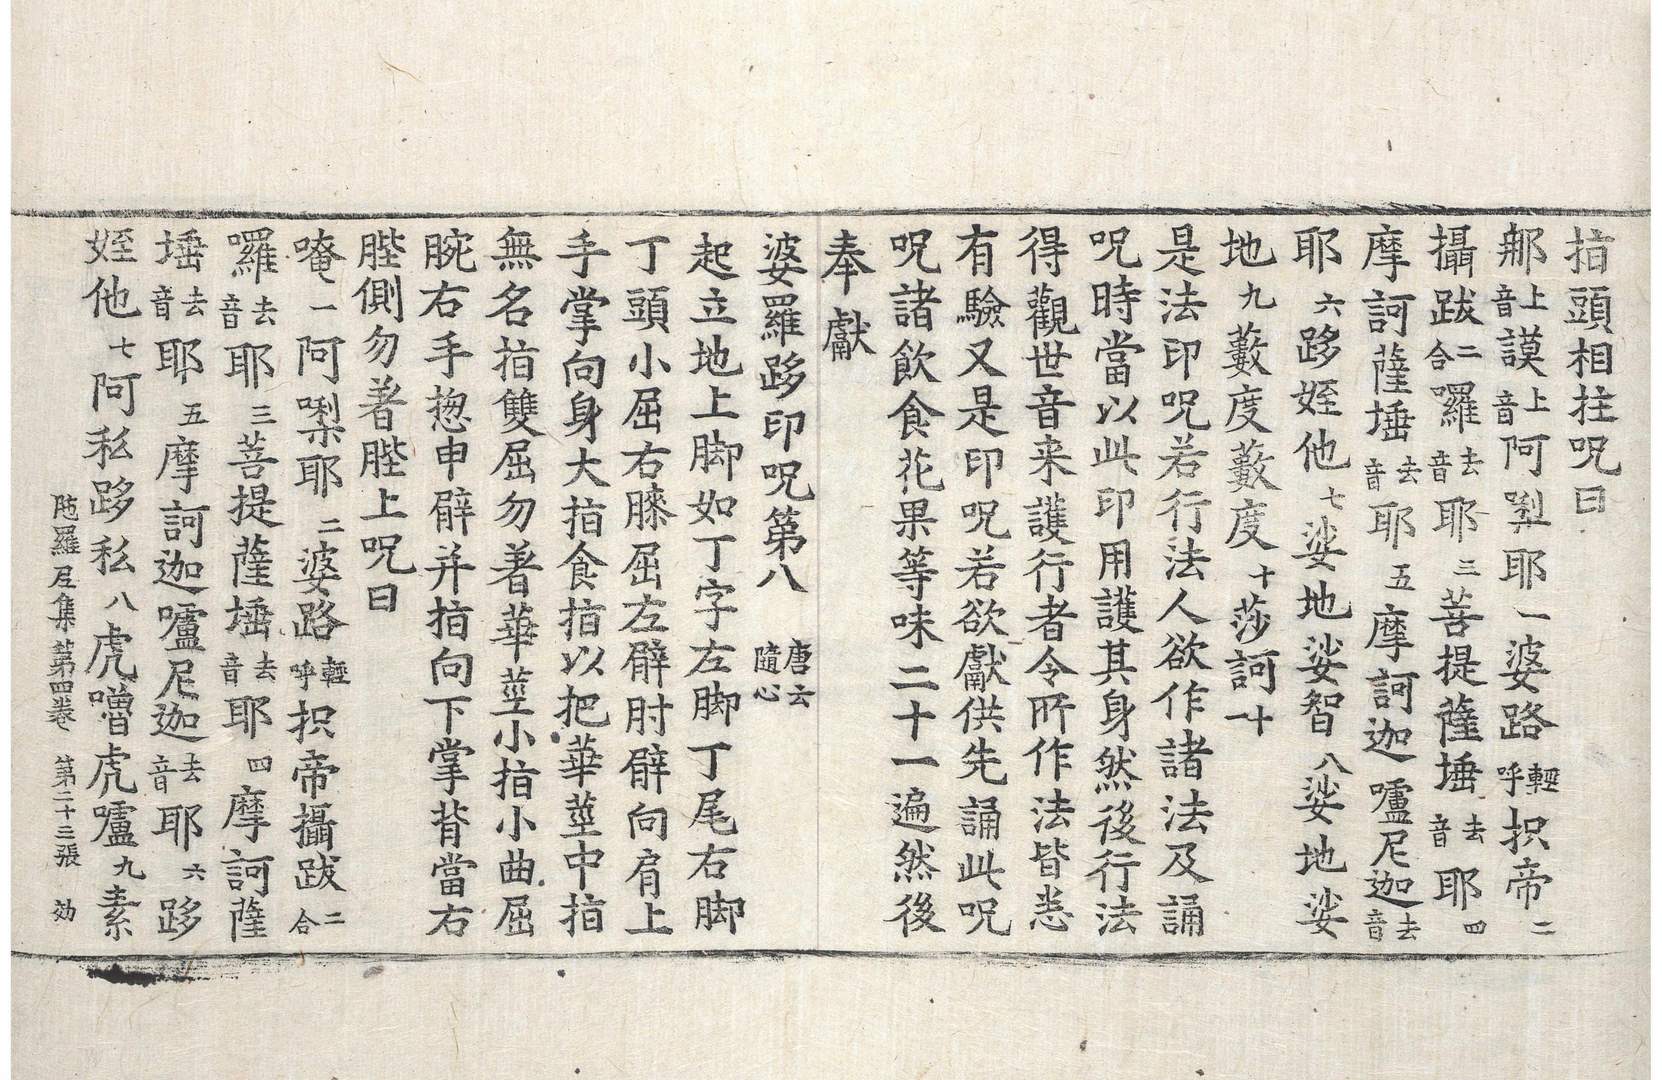 指頭相拄呪曰
那上音謨上音阿㗚耶一婆路輕呼枳帝二
攝跋二合囉去音耶三菩提薩埵去音耶四
摩訶薩埵去音耶五摩訶迦嚧尼迦去音
耶六跢姪他七娑地娑智八娑地娑
地九藪度藪度十莎訶十一
是法印呪若行法人欲作諸法及誦
呪時當以此印用護其身然後行法
得觀世音来護行者令所作法皆悉
有驗又是印呪若欲獻供先誦此呪
呪諸飲食花果等味二十一遍然後
奉獻
婆羅跢印呪第八唐云隨心
起立地上脚如丁字左脚丁尾右脚
丁頭小屈右膝屈左臂肘臂向肩上
手掌向身大指食指以把華莖中指
無名指雙屈勿著華莖小指小曲屈
腕右手惣申臂并指向下掌背當右
䏶側勿著䏶上呪曰
唵一阿㗚耶二婆路輕呼枳帝攝跋二合
囉去音耶三菩提薩埵去音耶四摩訶薩
埵去音耶五摩訶迦嚧尼迦去音耶六跢
姪他七阿私跢私八虎噌虎嚧九素
陁羅尼集第四卷 第二十三張 効